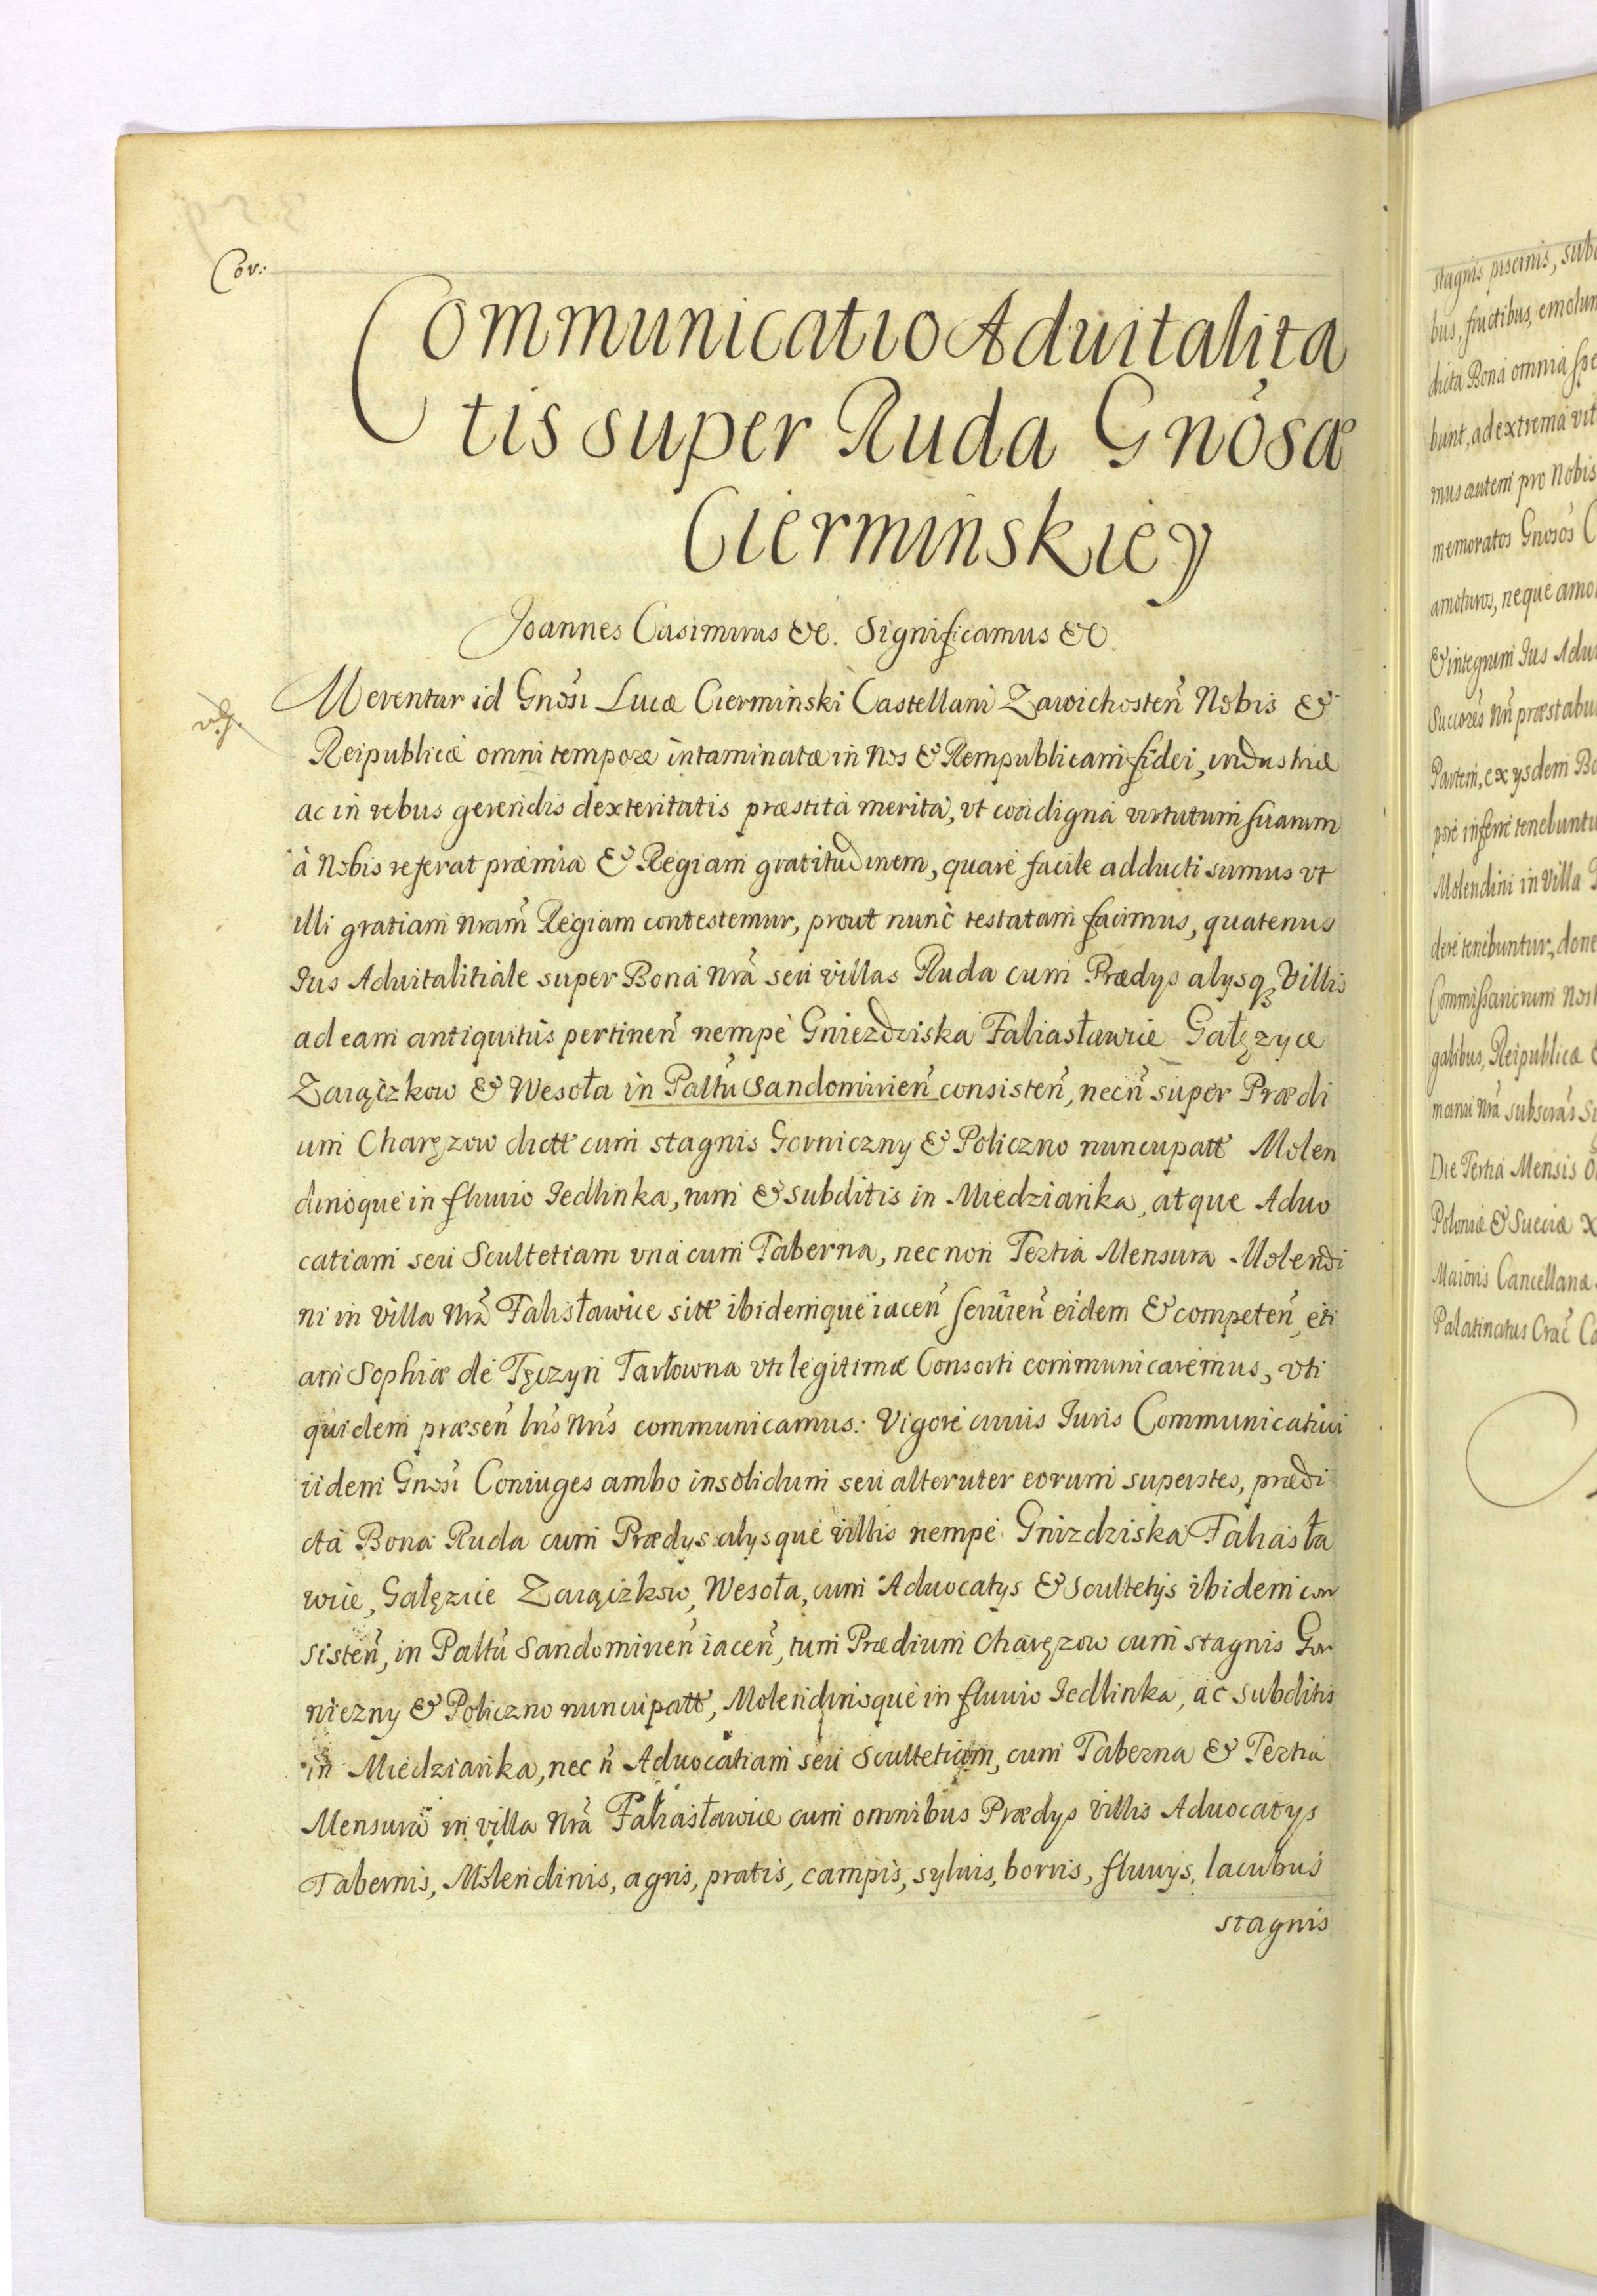 Cor:
Communicatio Aduitalita
tis super Ruda Gnosæ
Cierminskiey
Joannes Casimirus &c. Significamus &c.
Merentur id Gnosi Lucæ Cierminski Castellani Zawichosteñ Nobis &
Reipublicæ omni tempore intaminatæ in Nos & Rempublicam fidei, industriæ
ac in rebus gerendis dexteritatis præstita merita, vt condigna virtutum suarum
à Nobis referat præmia & Regiam gratitudinem, quare facile adducti sumus vt
illi gratiam nram̃ Regiam contestemur, prout nunc testatam facimus, quatenus
Jus Aduitalitiale super Bona nrã seu villas Ruda cum Prædys alysq3 Villis
ad eam antiquitus pertineñ nempe Gniezdziska Faliasławice Gałęzyce
Zaiączkow & Wesoła in Paltũ Sandomirieñ consisteñ, necñ super Prædi
um Charęzow dictt cum stagnis Gorniczny & Policzno nuncupatt Molen
dinoque in fluuio Jedlinka, tum & subditis in Miedzianka, atque Aduo
catiam seu Scultetiam vna cum Taberna, nec non Tertia Mensura Molendi
ni in villa nrã Falisławice sitt ibidemque iaceñ seruieñ eidem & competeñ, eti
am Sophiæ de Tęczyn Tarłowna vti legitimæ Consorti communicaremus, vti
quidem præseñ lrĩs nrĩs communicamus: Vigore cuius Juris Communicatiui
iidem Gnosi Coniuges ambo insolidum seu alteruter eorum superstes, prædi
cta Bona Ruda cum Prædys alysque villis nempe Gnizdziska Faliasła
wice, Gałęzice Zaiączkow, Wesoła, cum Aduocatys & Scultetys ibidem con
sisteñ, in Paltũ Sandomirieñ iaceñ, tum Prædium Charęzow cum stagnis Gor
niczny & Policzno nuncupatt, Molendinoque in fluuio Jedlinka, ac subditis
in Miedzianka, nec ñ Aduocatiam seu Scultetiam, cum Taberna & Tertia
Mensura in villa nrã Faliasławice cum omnibus Prædys villis Aduocatys
Tabernis, Molendinis, agris, pratis, campis, syluis, borris, fluuys, lacubus
stagnis
stagnis piscinis,
bus, fructibus,
dicta Bona omnia
bunt, ad extrema
mus autem pro Nobis
memoratos Gnosos
amoturos, neque
& integrum Jus
Succores nrĩ
Partem, ex ysdem
pore inferre tenebuntur
Molendini in villa
dere tenebuntur, done
Commissariorum
galibus, Reipublicæ
manu nrã subscrãs
Die Tertia Mensis
Poloniæ & Sueciæ
Maioris Cancellariæ
Palatinatus Crac̃